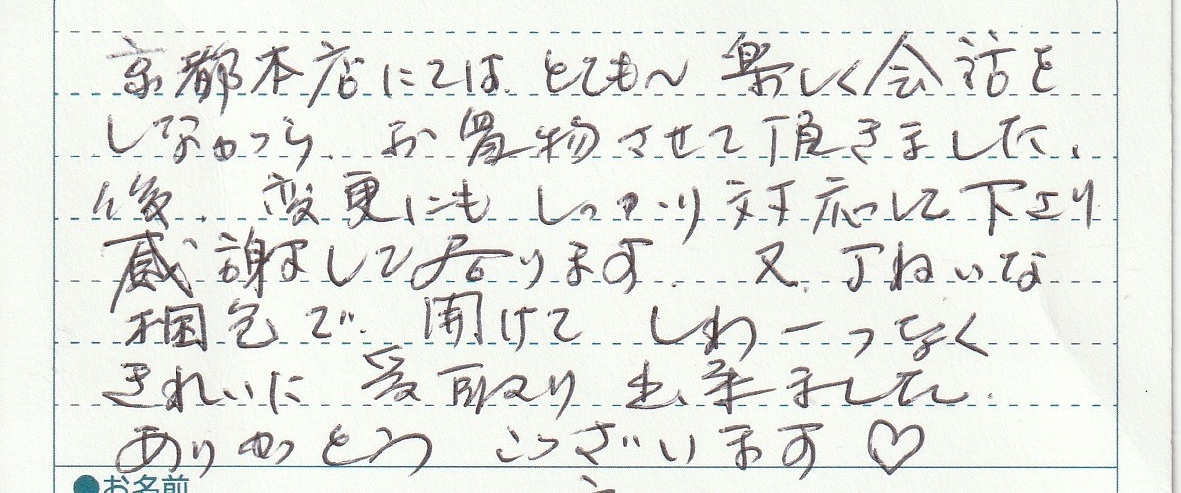 京都本店にては、とても〜楽しく会話を
しながら、お買物させて頂きました。
後、変更にもしっかり対応して下さり
感謝して居ります。又、丁ねいな
梱包で、開けてしわ一つなく
きれいに受取り出来ました。
ありがとうございます♡
●お名前